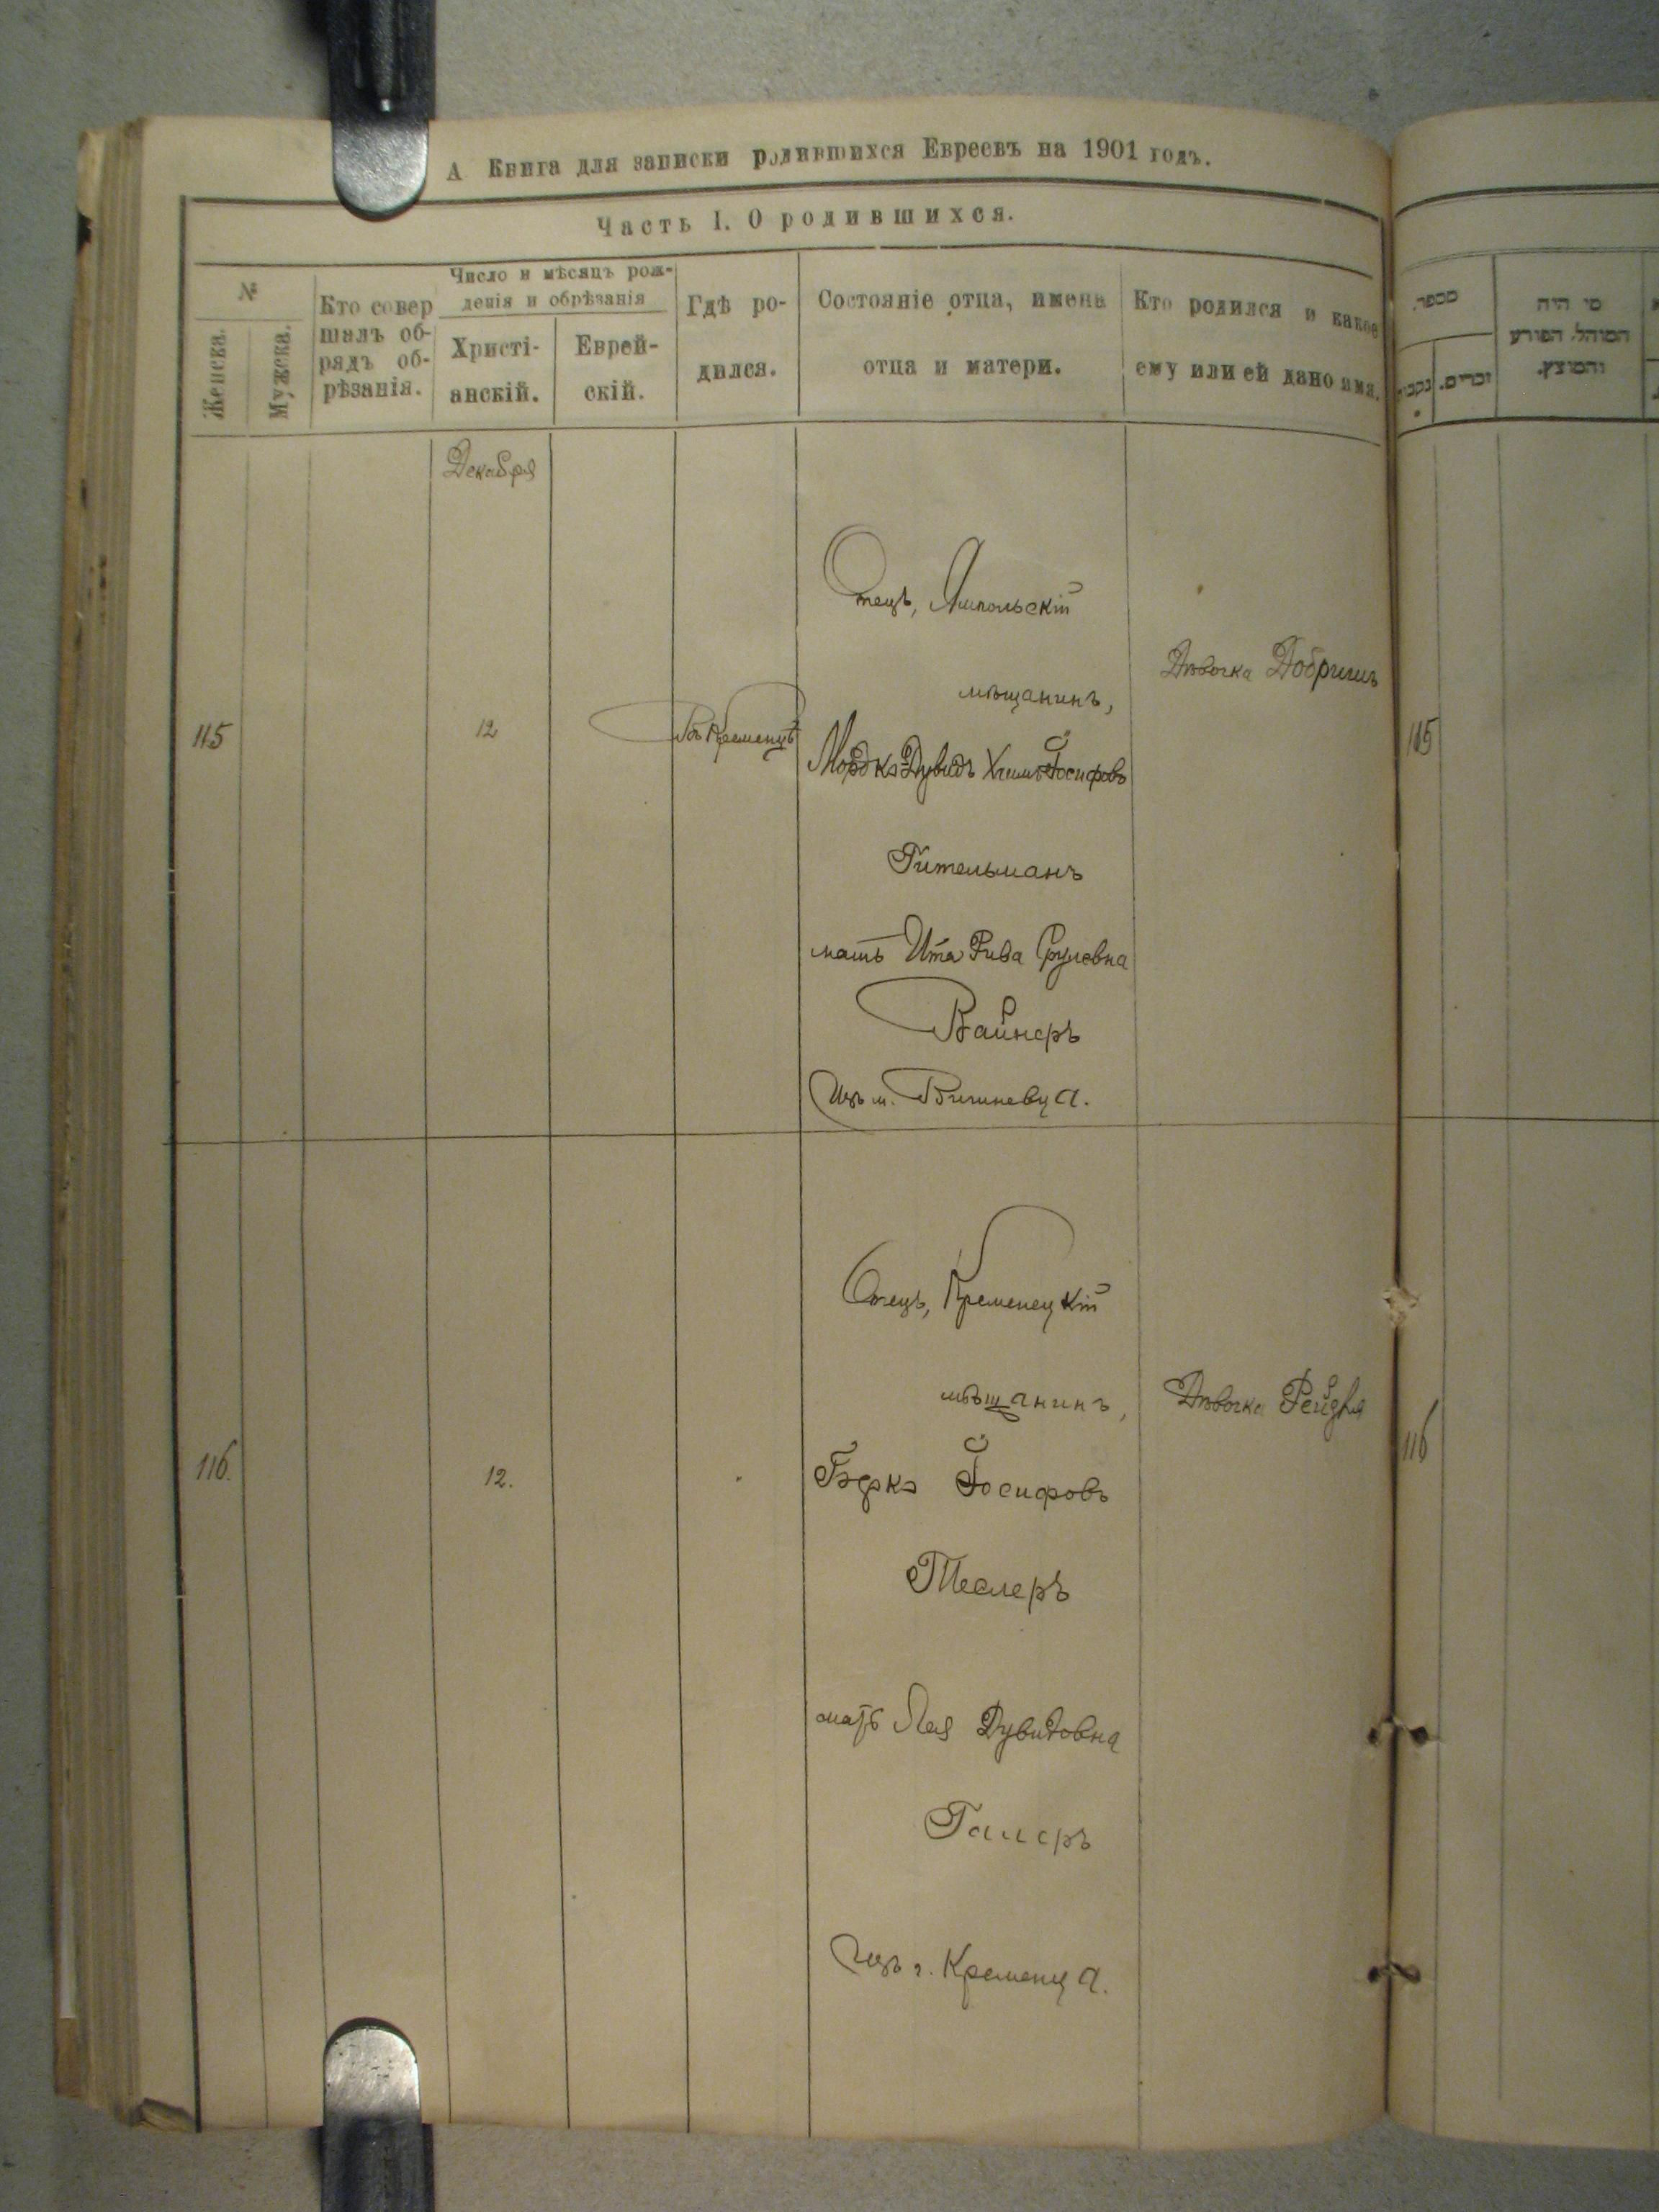 А Книга для записки родившихся Евреевъ на 1901 годъ.
Часть I. О родившихся.
№
Женска.
Мужска.
Кто совер
шалъ об-
рядъ об-
рѣзанія.
Число и мѣсяцъ рож-
денія и обрѣзанія
Христі-
анскій.
Еврей-
скій.
Гдѣ ро-
дился.
Состояніе отца, имена
отца и матери.
Кто родился и какое
ему или ей дано имя.
מספר.
נקבו
זכרים.
מי היה
המוהל, הפורע
והמוצץ.
Декабря
115
12
Въ Кременцѣ
Отецъ, Ямпольскій
мѣщанинъ,
Мордко-Дувидъ Хаимъ-Іосифовъ
Гительманъ
мать Ита Рива Срулевна
Вайнеръ
Изъ м. Вишневца.
Дѣвочка Добришъ
115
116.
12.
Отецъ, Кременецкій
мѣщанинъ,
Іосифовъ
Теслеръ
мать Лея Дувидовна
Галеръ
Изъ г. Кременца.
Дѣвочка Рейдля
116